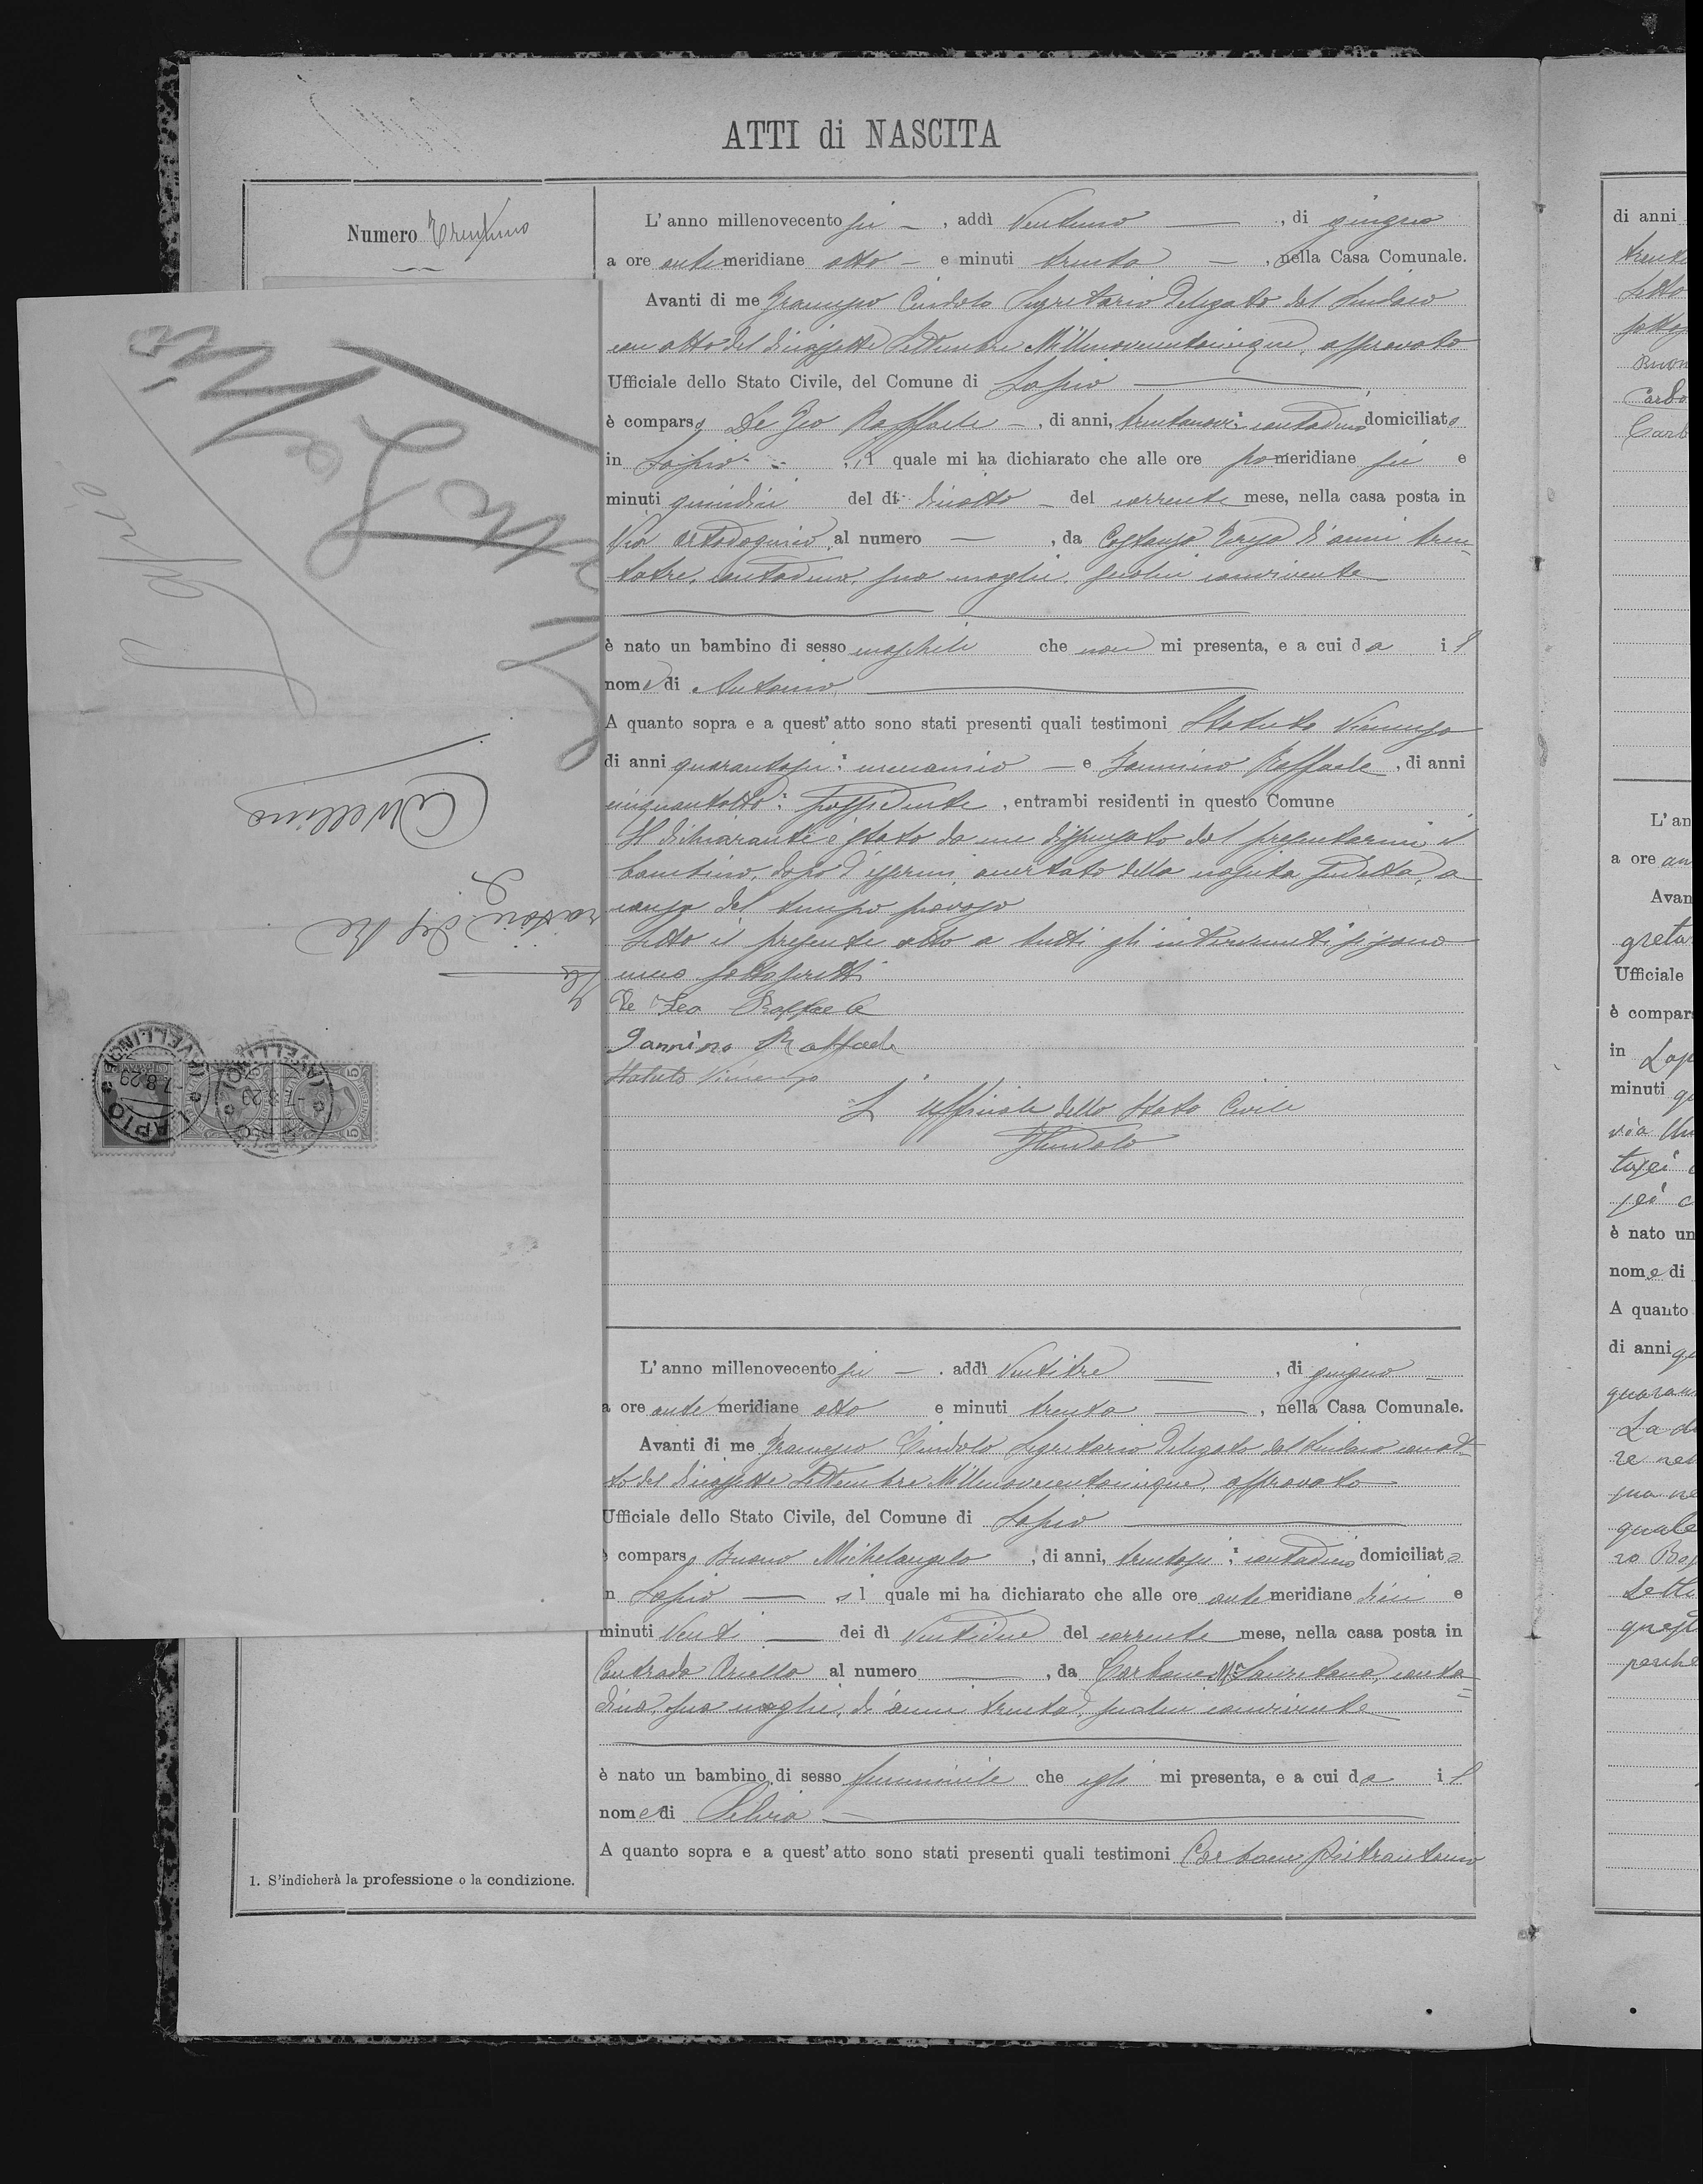 ATTI di NASCITA
Numero Trentuno
L'anno millenovecento sei, addì Ventuno, di giugno
a ore antimeridiane otto e minuti trenta, nella Casa Comunale.
Avanti di me Francesco Cindolo Segretario Delegato dal Sindaco
con atto del diciassette Settembre Millenovecentocinque, approvato
Ufficiale dello Stato Civile, del Comune di Lapio
è comparso De Feo Raffaele, di anni, trentanove: contadino domiciliato
in Lapio, il quale mi ha dichiarato che alle ore pomeridiane sei e
minuti quindici del dì diciotto del corrente mese, nella casa posta in
Via al numero, da Costanza di anni tren=
tatre, contadina, sua moglie, secolui convivente
è nato un bambino di sesso maschile che non mi presenta, e a cui da il
nome di Antonio
A quanto sopra e a quest'atto sono stati presenti quali testimoni Statuto Vincenzo
di anni quarantasei: meccanico e Iannino Raffaele, di anni
cinquantotto: possidente, entrambi residenti in questo Comune
Il dichiarante è stato da me dispensato dal presentarmi il
bambino, dopo d'essermi accertato della nascita sudetta, a
causa del tempo piovoso
Letto il presente atto a tutti gl'intervenuti si sono
meco sottoscritti
De Feo Raffaele
Iannino Raffaele
Statuto Vincenzo
L'Ufficiale dello Stato Civile
FCindolo
L'anno millenovecento sei, addì Ventitre, di giugno
a ore antemeridiane otto e minuti trenta, nella Casa Comunale.
Avanti di me Francesco Cindolo Segretario Delegato dal Sindaco con at=
to del diciassette Settembre Millenovecentocinque, approvato
Ufficiale dello Stato Civile, del Comune di Lapio
è comparso Buono Michelangelo, di anni, trentasei: contadino domiciliato
in Lapio il quale mi ha dichiarato che alle ore antemeridiane dieci e
minuti Venti del dì Ventidue del corrente mese, nella casa posta in
Contrada Ariella al numero, da Carbone Ma Lauretana, conta=
dina, sua moglie, di anni trenta, secolui convivente
è nato un bambino di sesso femminile che egli mi presenta, e a cui da il
nome di Silvia
A quanto sopra e a quest'atto sono stati presenti quali testimoni Carbone Pietrantonio
1. S'indicherà la professione o la condizione.
Lapio
Avellino
del Re
LAPIO (AVELLINO)
-7.8.29
di anni
L'an
a ore an
Avan
greta
Ufficiale
è compars
in Lap
minuti
è nato un
nome di
A quanto
di anni